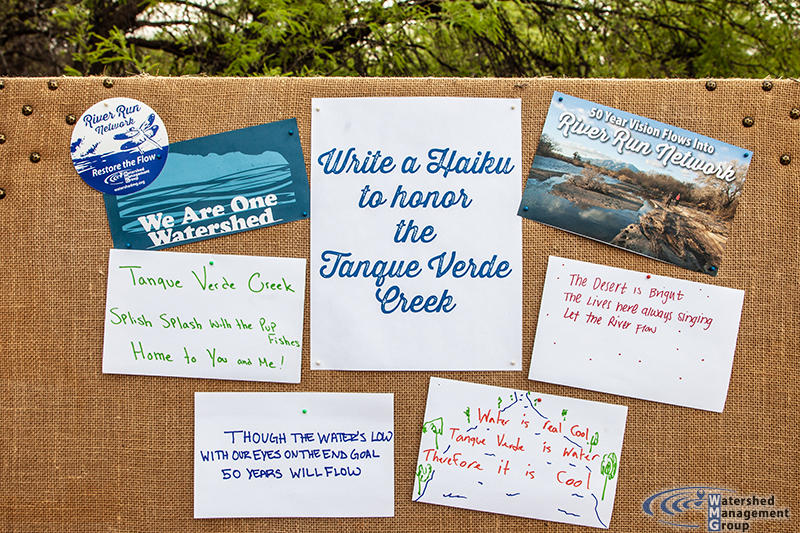 River Run
Network
Restore the Flow
Watershed
Management
Group
watershedmg.org
We Are One
Watershed
Write a Haiku
to honor
the
Tanque Verde
Creek
50 Year Vision Flows Into
River Run Network
Tanque Verde Creek
Splish Splash with the Pup
Fishes
Home to You and Me!
The Desert is Bright
The Lives here always singing
Let the River Flow
THOUGH THE WATER'S LOW
WITH OUR EYES ON THE END GOAL
50 YEARS WILL FLOW
Water is real Cool
Tanque Verde is Water
Therefore it is Cool
Watershed
Management
Group
WMG